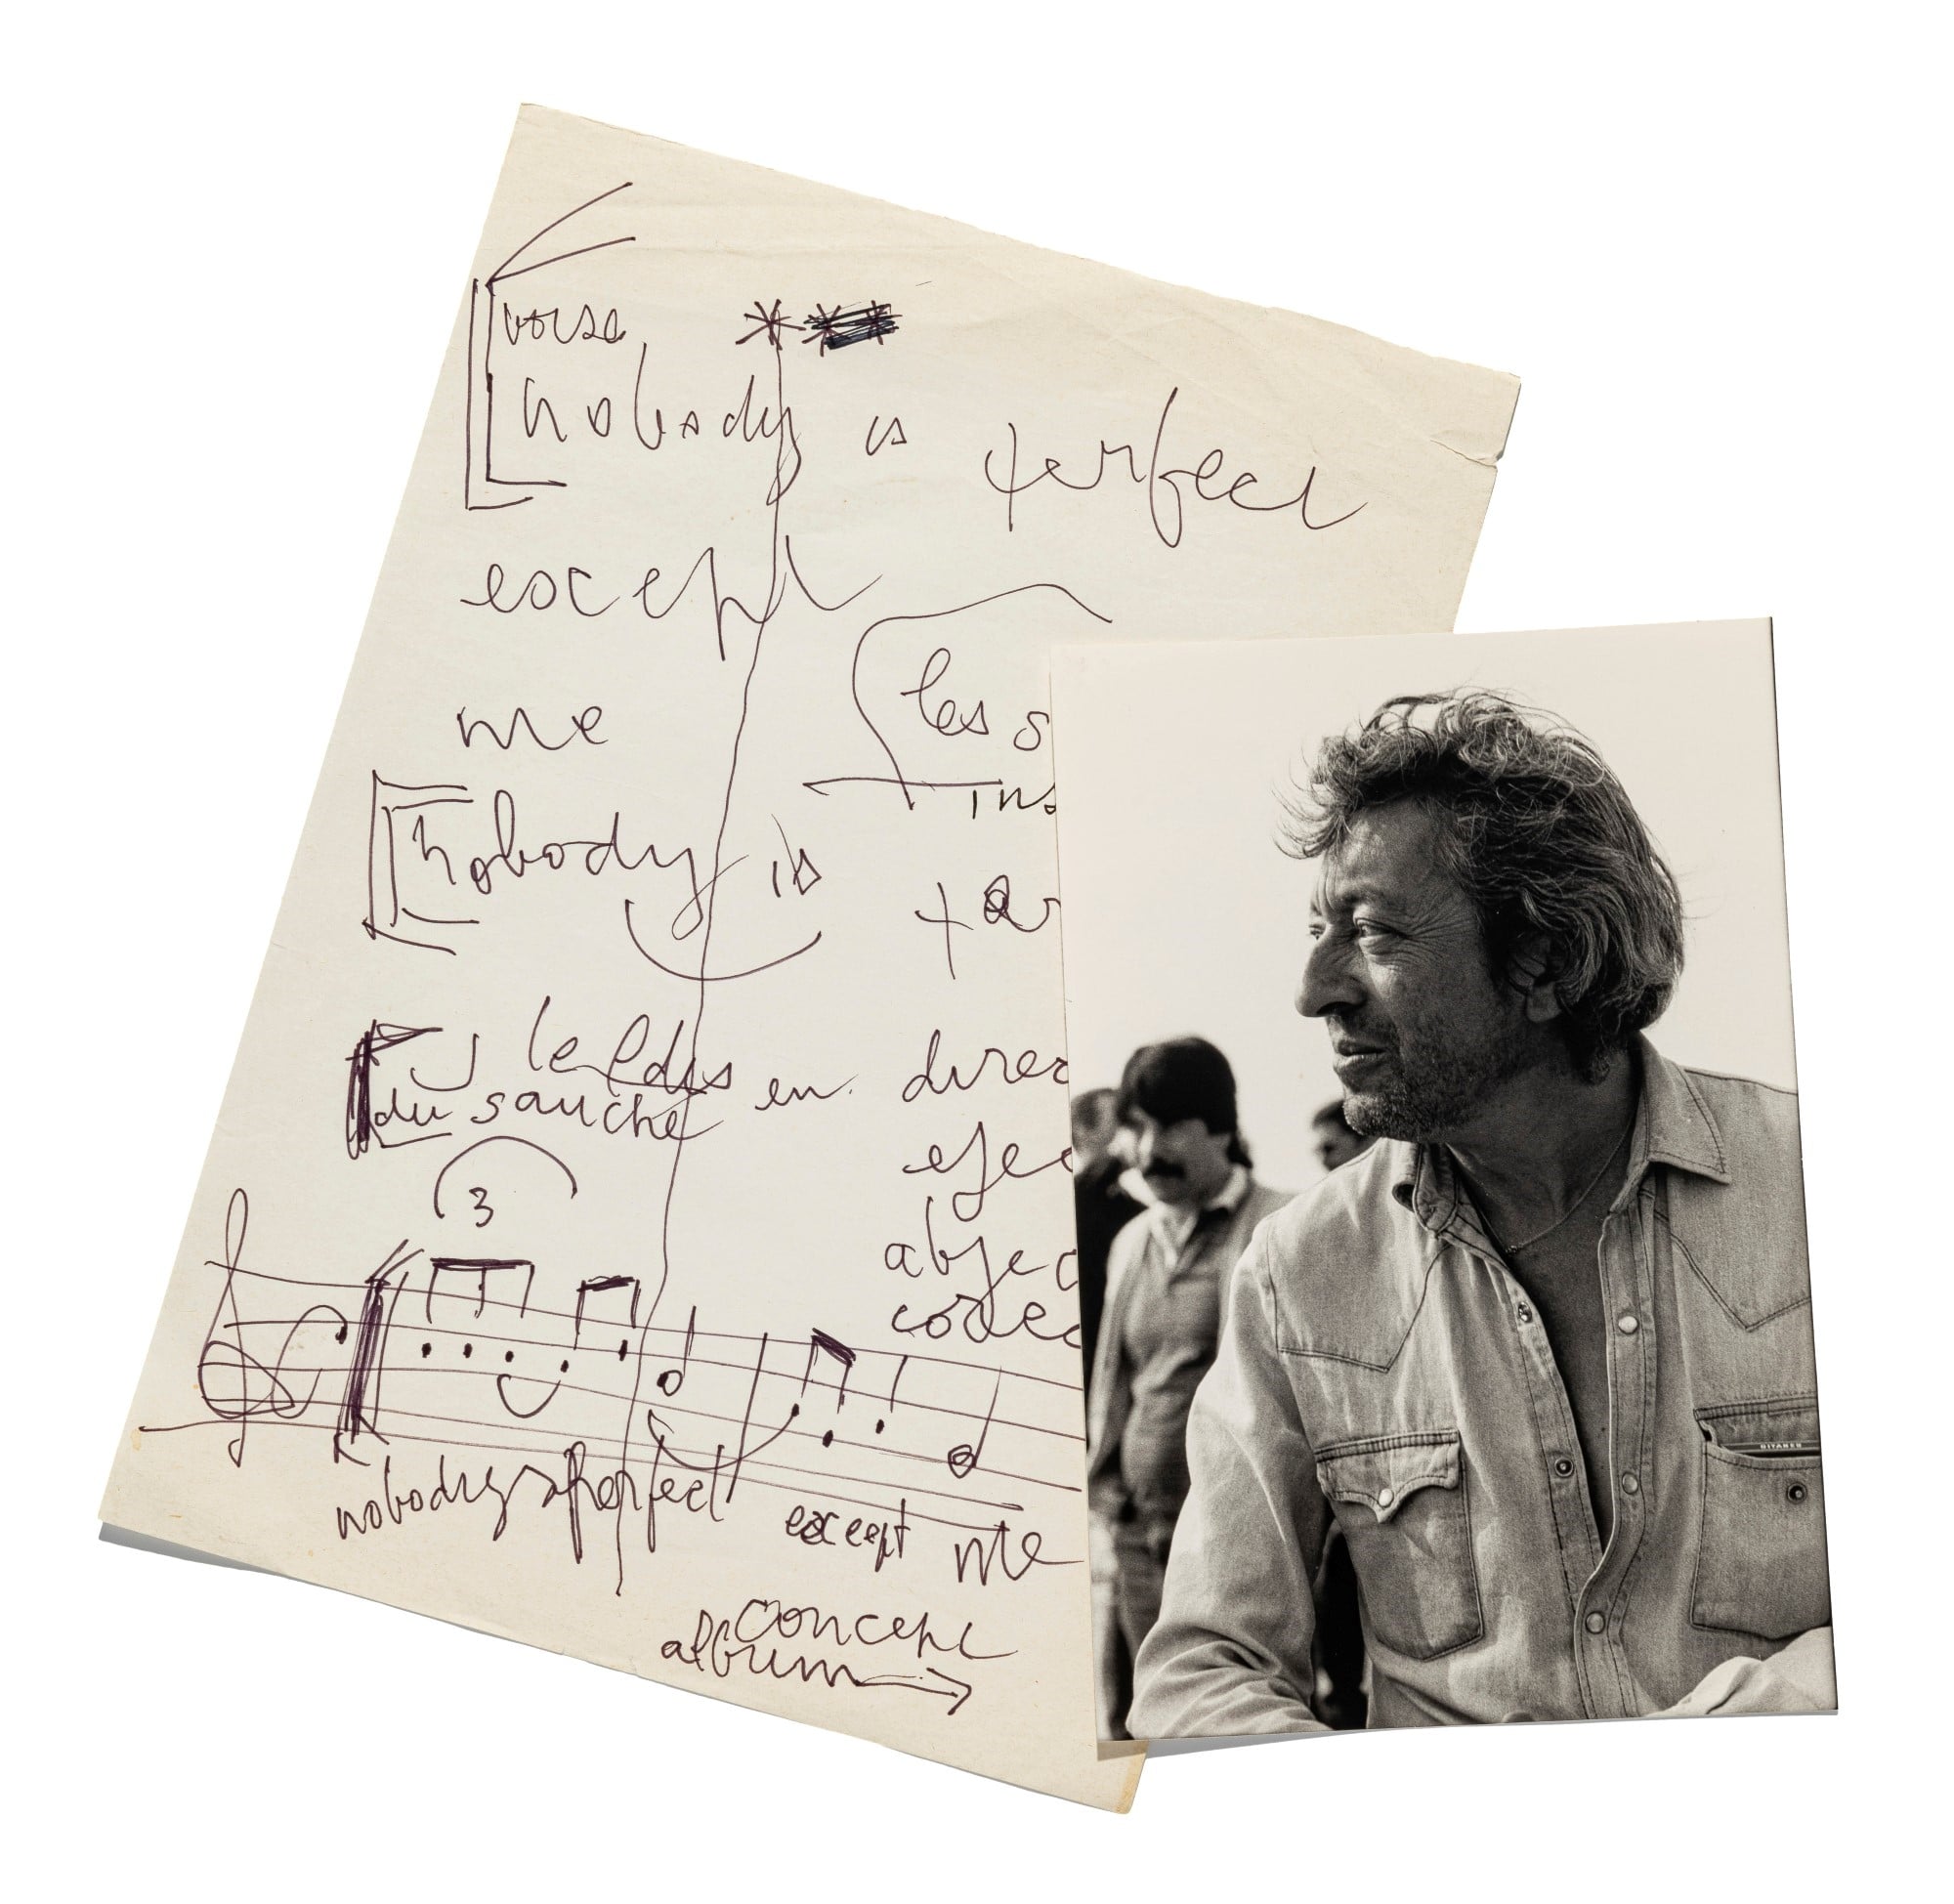 verse
nobody is perfect
except
les s
me
ins
nobody is
par
le
en direc
du
ejec
abjec
3
codec
nobody is perfect except me
concept
album
GITANES